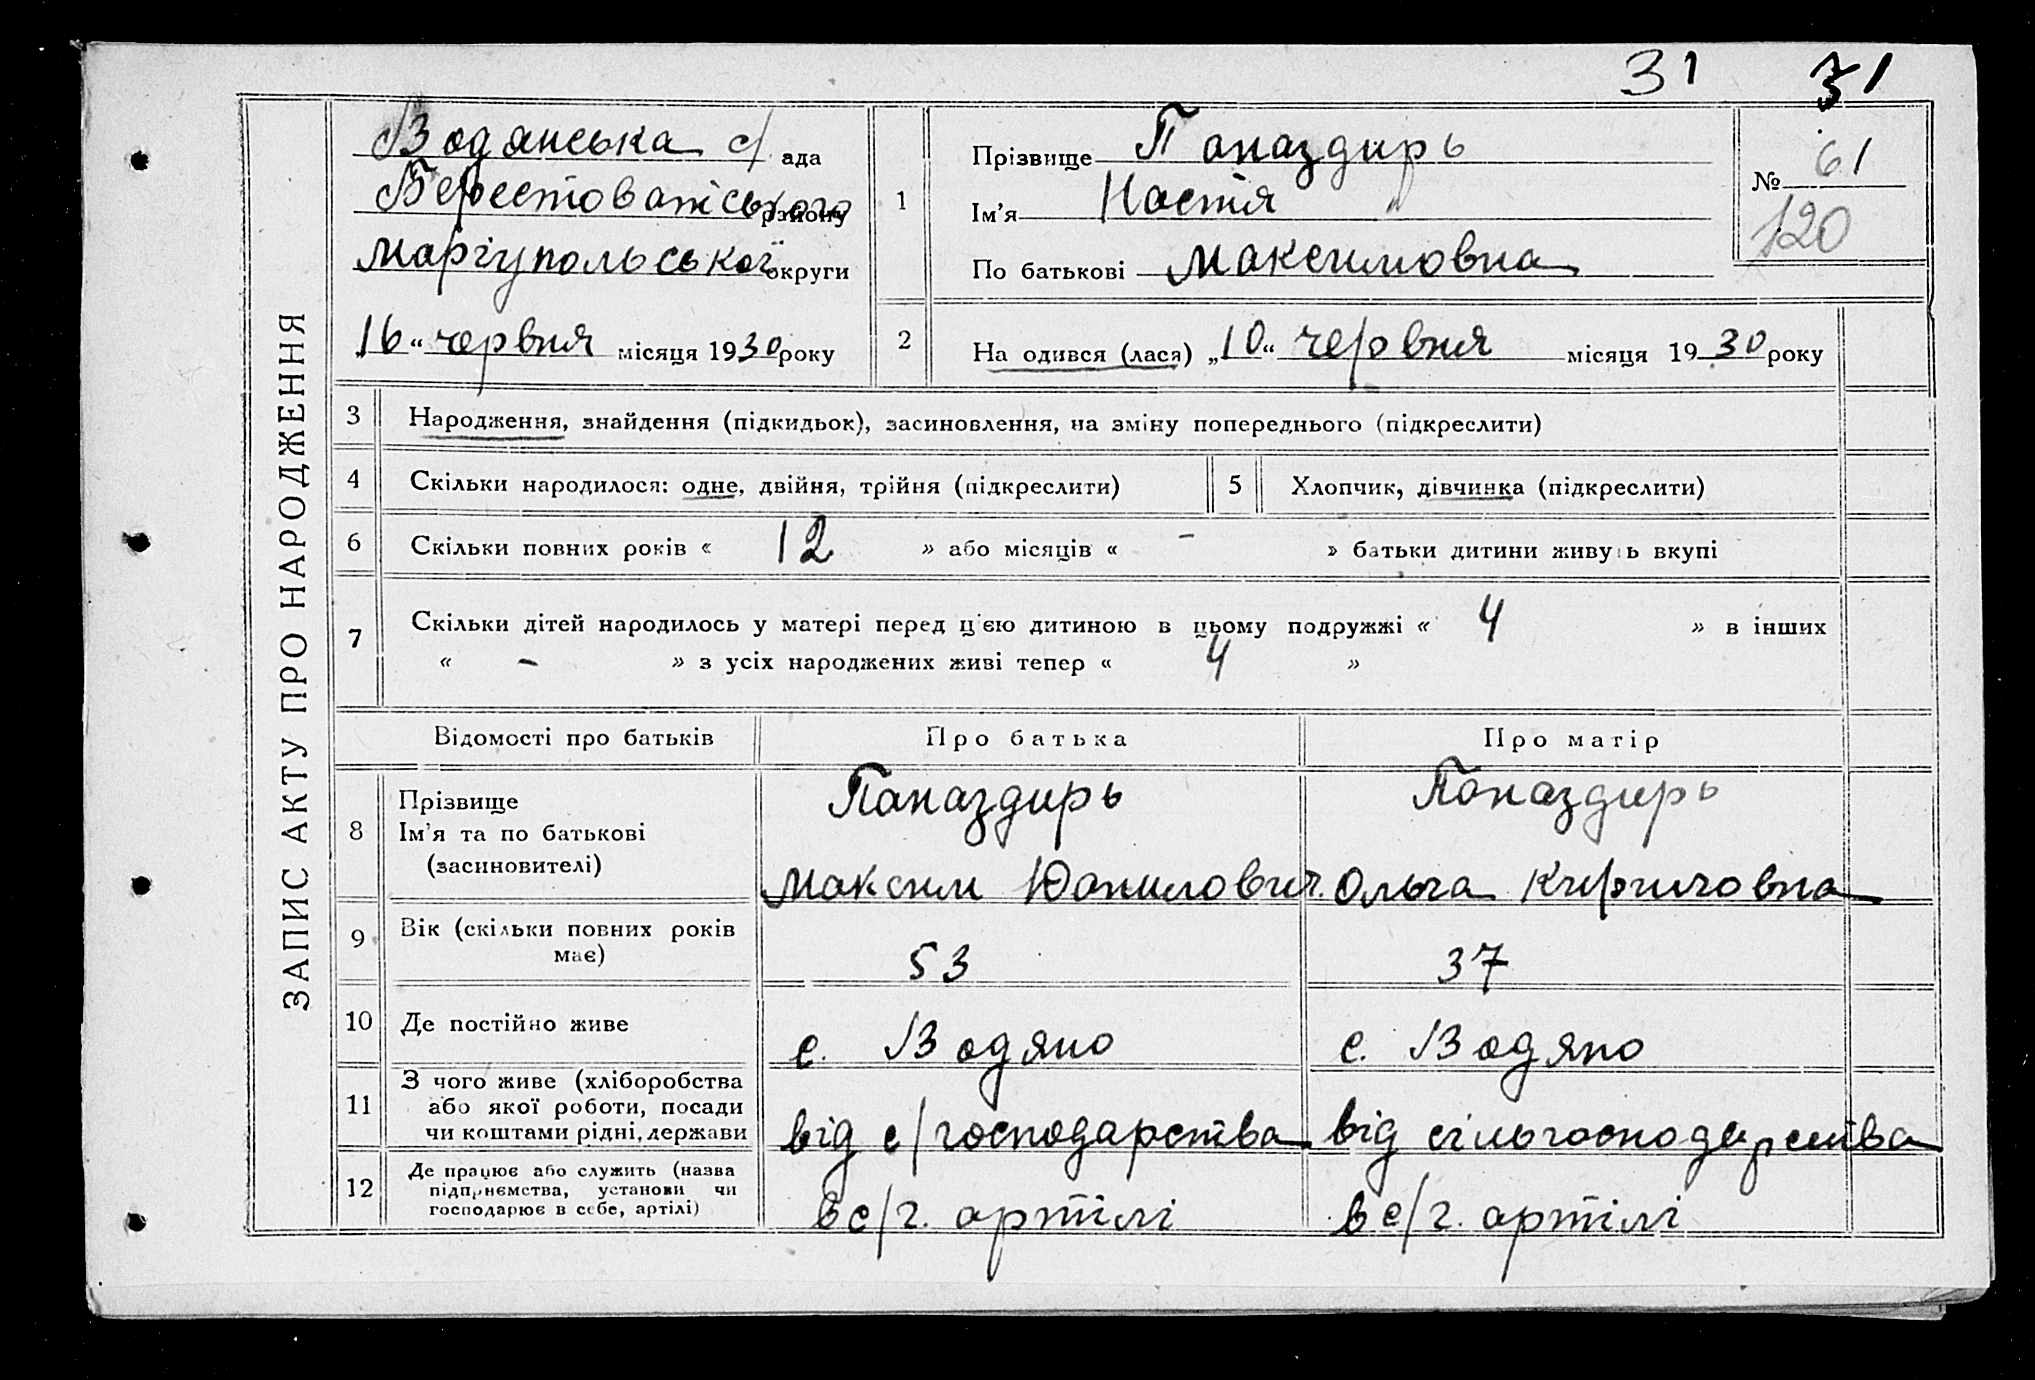 31 31
ЗАПИС АКТУ ПРО НАРОДЖЕННЯ
Водянська с/ ада
Берестоватського району
Маріупольської округи
16 " червня місяця 1930 року
1
Прізвище Папаздирь
Ім'я Настя
По батькові Максимовна
№ 61
120
2 На одився (лася) „10" червня місяця 1930 року
3 Народження, знайдення (підкидьок), засиновлення, на зміну попереднього (підкреслити)
4 Скільки народилося: одне, двійня, трійня (підкреслити) 5 Хлопчик, дівчинка (підкреслити)
6 Скільки повних років « 12 » або місяців « - » батьки дитини живуть вкупі
7 Скільки дітей народилось у матері перед ц'єю дитиною в цьому подружжі « 4 » в інших
« - » з усіх народжених живі тепер « 4 »
Відомості про батьків Про батька Про матір
8 Прізвище
Ім'я та по батькові
(засиновителі)
Папаздирь
Максим Юхимович
Папаздирь
Ольга Кириловна
9 Вік (скільки повних років
має)
53 37
10 Де постійно живе с. Водяно с. Водяно
11 З чого живе (хліборобства
або якої роботи, посади
чи коштами рідні, держави
від с/господарства від сільгосподарства
12 Де працює або служить (назва
підприємства, установи чи
господарює в себе, артілі)
в с/г. артілі в с/г. артілі